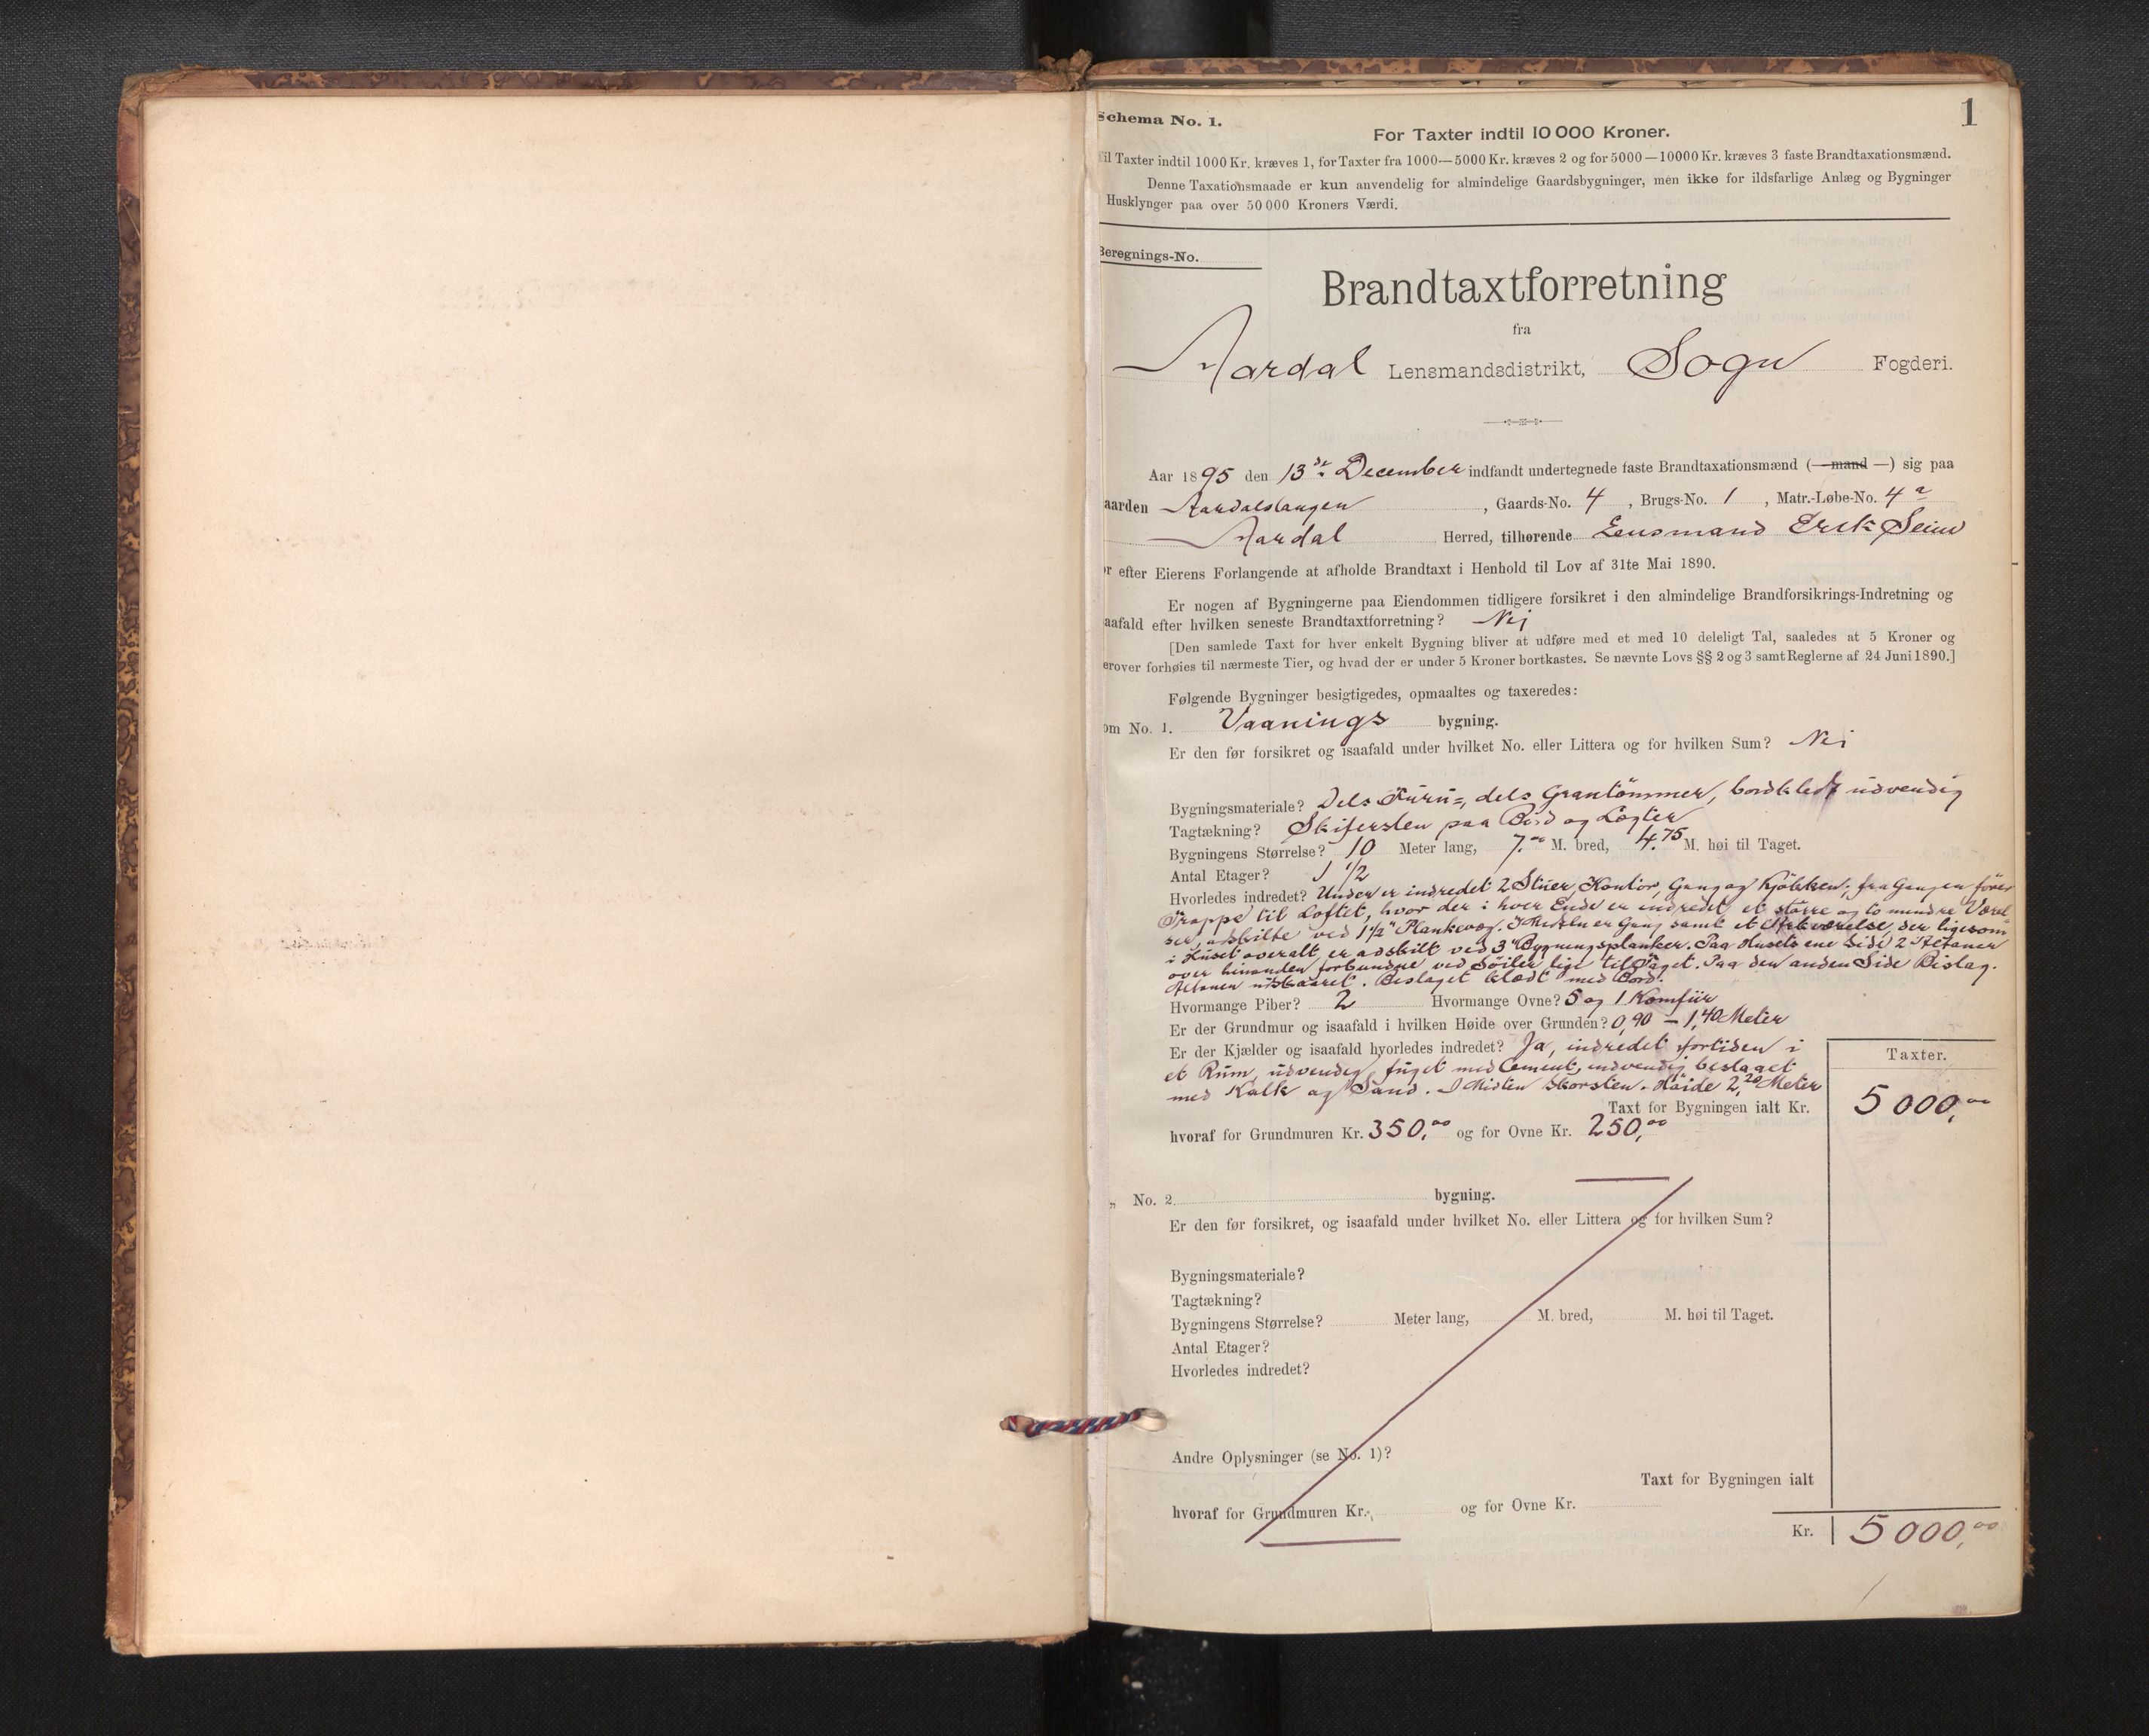 1
Schema No. 1.
For Taxter indtil 10 000 Kroner.
Til Taxter indtil 1000 Kr. kræves 1, for Taxter fra 1000—5000 Kr. kræves 2 og for 5000—10000 Kr. kræves 3 faste Brandtaxationsmænd.
Denne Taxationsmaade er kun anvendelig for almindelige Gaardsbygninger, men ikke for ildsfarlige Anlæg og Bygninger
Husklynger paa over 50 000 Kroners Værdi.
Beregnings-No.
Brandtaxtforretning
fra
Aardal Lensmandsdistrikt, Sogn Fogderi.
Aar 1895 den 13de December indfandt undertegnede faste Brandtaxationsmænd (—mand—) sig paa
aarden Aardalstangen, Gaards-No. 4, Brugs-No. 1, Matr.-Løbe-No. 4a
Aardal Herred, tilhørende Lensmand Erik Seim
r efter Eierens Forlangende at afholde Brandtaxt i Henhold til Lov af 31te Mai 1890.
Er nogen af Bygningerne paa Eiendommen tidligere forsikret i den almindelige Brandforsikrings-Indretning og
aafald efter hvilken seneste Brandtaxtforretning? Nei
[Den samlede Taxt for hver enkelt Bygning bliver at udføre med et med 10 deleligt Tal, saaledes at 5 Kroner og
erover forhøies til nærmeste Tier, og hvad der er under 5 Kroner bortkastes. Se nævnte Lovs §§ 2 og 3 samt Reglerne af 24 Juni 1890.]
Følgende Bygninger besigtigedes, opmaaltes og taxeredes:
om No. 1. Vaanings bygning.
Er den før forsikret og isaafald under hvilket No. eller Littera og for hvilken Sum? Nei
Bygningsmateriale? Dels Furu=, dels Grantømmer, bordklædt udvendig
Tagtækning? Skifersten paa Bord og Lægter
Bygningens Størrelse? 10 Meter lang, 7.00 M. bred, 4.75 M. høi til Taget.
Antal Etager? 1 1/2
Hvorledes indredet? Under er indredet 2 Stuer, Kontor, Gang og Kjøkken; fra Gangen fører
Trappe til Loftet, hvor der i hver Ende er indredet et større og to mindre Værel-
ser, adskilte ved 1 1/2" Plankevæg. I Midten er Gang samt et Arkværelse, der ligesom
i Huset overalt er adskilt ved 3" Bygningsplanker. Paa Husets ene Side 2 Altaner
over hinanden forbundne ved Søiler lige til Taget. Paa den anden Side Bislag.
Altanen udskaaret. Beslaget klædt med Bord.
Hvormange Piber? 2 Hvormange Ovne? 5 og 1 Komfür
Er der Grundmur og isaafald i hvilken Høide over Grunden? 0,90 — 1,40 Meter
Er der Kjælder og isaafald hvorledes indredet? Ja, indredet fortiden i
et Rum, udvendig füget med Cement, indvendig beslaget
med Kalk og Sand. I Midten Skorsten. Høide 2,20 Meter
Taxter.
Taxt for Bygningen ialt Kr. 5 000,00
hvoraf for Grundmuren Kr. 350,00 og for Ovne Kr. 250,00
„ No. 2 bygning.
Er den før forsikret, og isaafald under hvilket No. eller Littera og for hvilken Sum?
Bygningsmateriale?
Tagtækning?
Bygningens Størrelse? Meter lang, M. bred, M. høi til Taget.
Antal Etager?
Hvorledes indredet?
Andre Oplysninger (se No. 1)?
Taxt for Bygningen ialt
hvoraf for Grundmuren Kr. og for Ovne Kr.
Kr. 5 000,00